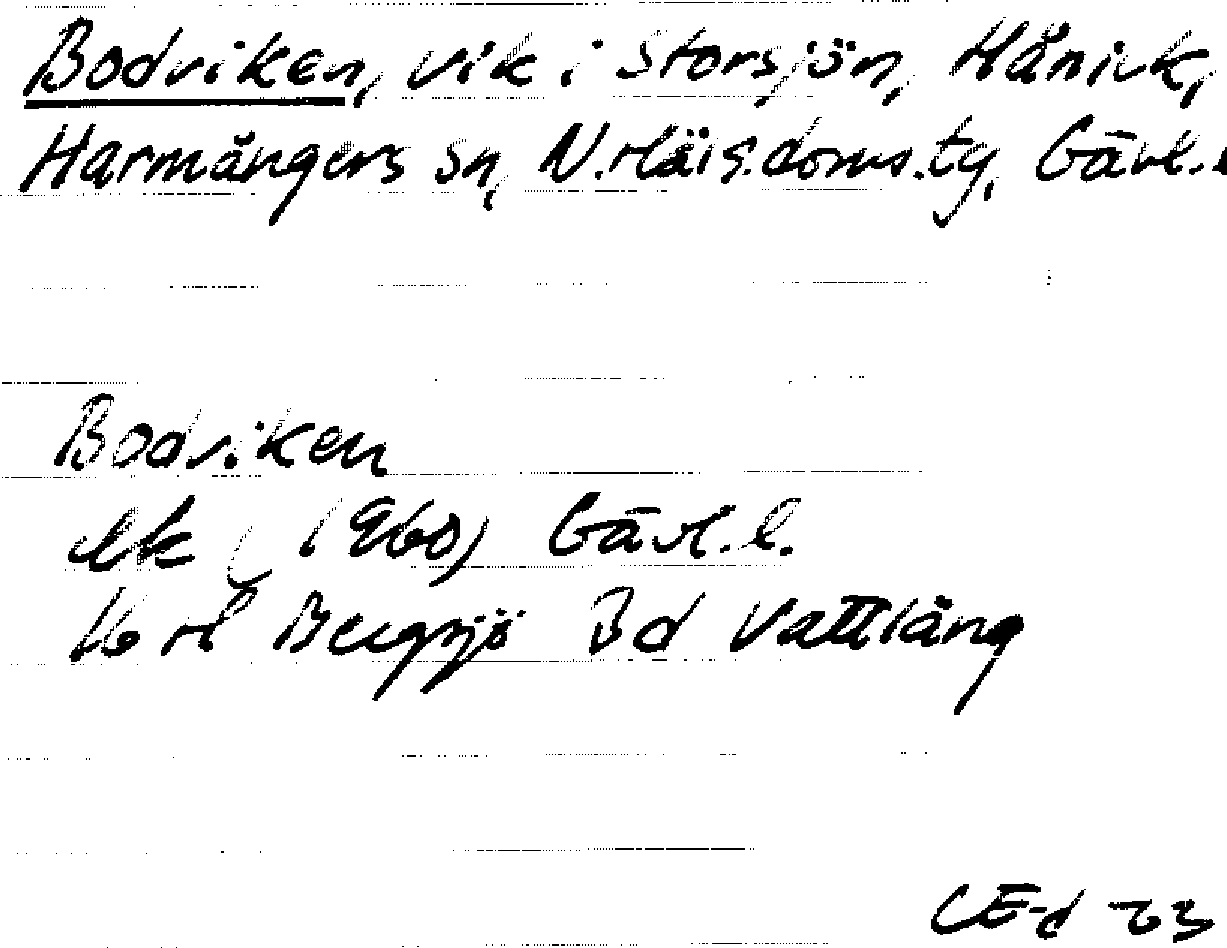 Bodviken, vik i Storsjön, Hånick,
Harmångers sn, N.Häls.doms.ty, Gävl.l
Bodviken
ek (1960) Gävl.l.
Bergsjö Bd Vattlång
CE-d 63